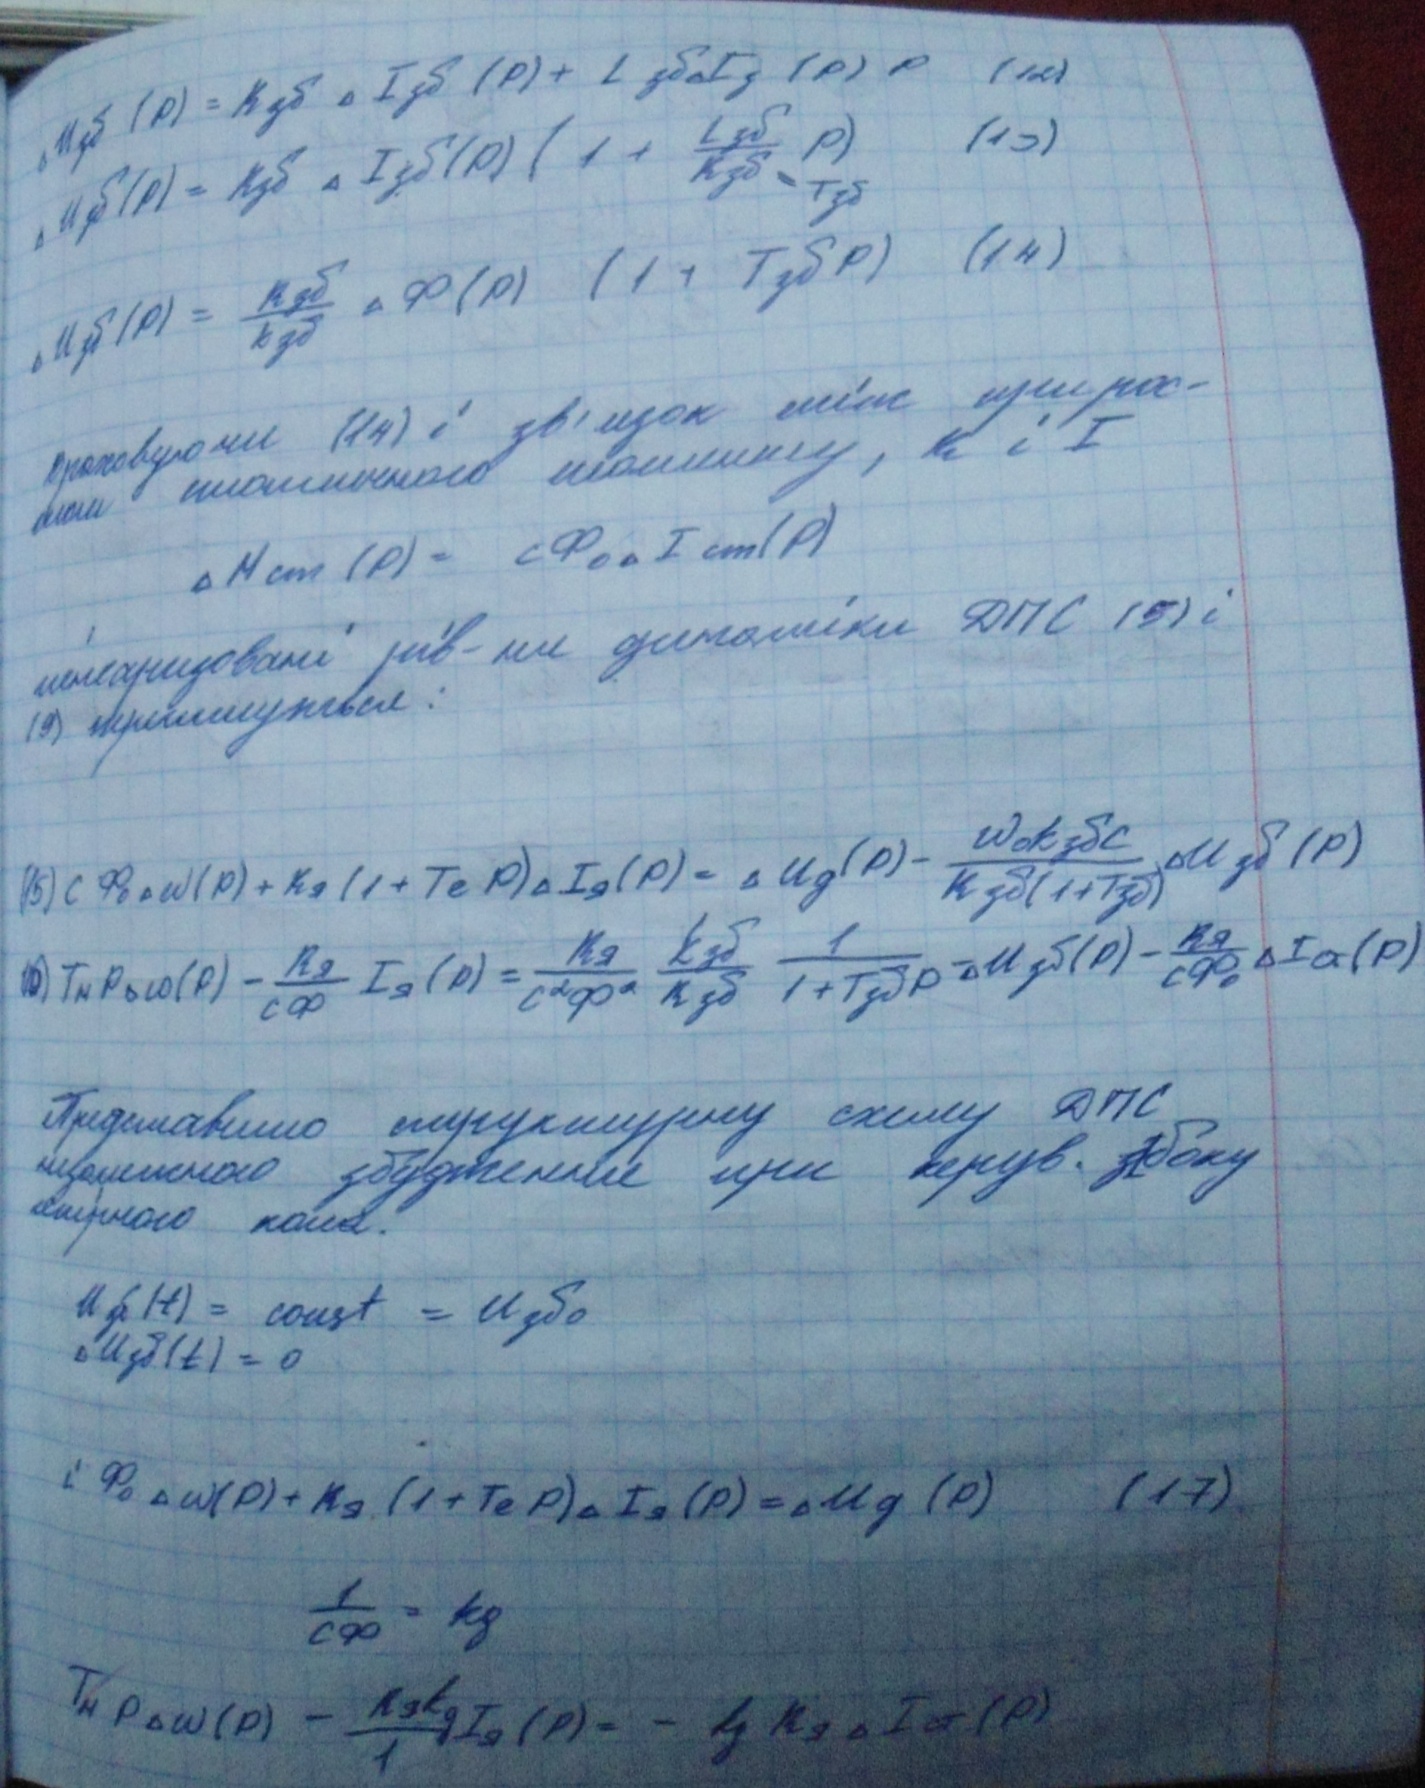 ΔUзб(P) = Rзб ΔIзб(P) + Lзб ΔIз(P) P (12)
ΔUзб(P) = Rзб ΔIзб(P) (1 + Lзб/Rзб P) (13)
= Tзб
ΔUзб(P) = Rзб/kзб ΔФ(P) (1 + TзбP) (14)
(14) і зв'язок між прирос-
тами статичного моменту, R і I
ΔMст(P) = cФ₀ΔIст(P)
лінеаризовані рів-ня динаміки ДПС (5) і
(9) отримуються:
(15) cФ₀Δω(P) + Rя(1+TеP)ΔIя(P) = ΔUд(P) − ω₀kзбc/Rзб(1+Tзб) ΔUзб(P)
(16) TмPΔω(P) − Rя/cФ Iя(P) = Rя/c²Ф² kзб/Rзб 1/1+TзбP ΔUзб(P) − Rя/cФ₀ ΔIσ(P)
Представимо структурну схему ДПС
незалежного збудження при керув. збоку
якірного кола.
Uзб(t) = const = Uзб₀
ΔUзб(t) = 0
cФ₀Δω(P) + Rя(1+TеP)ΔIя(P) = ΔUд(P) (17)
1/cФ = kд
TмPΔω(P) − Rяkд/1 Iя(P) = − kд Rя ΔIσ(P)